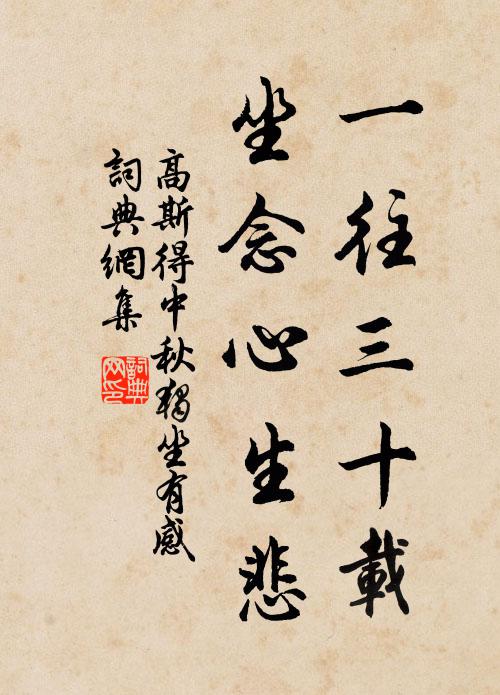 一往三十載
坐念心生悲
高斯得中秋獨坐有感
詞典網集
詞典網印